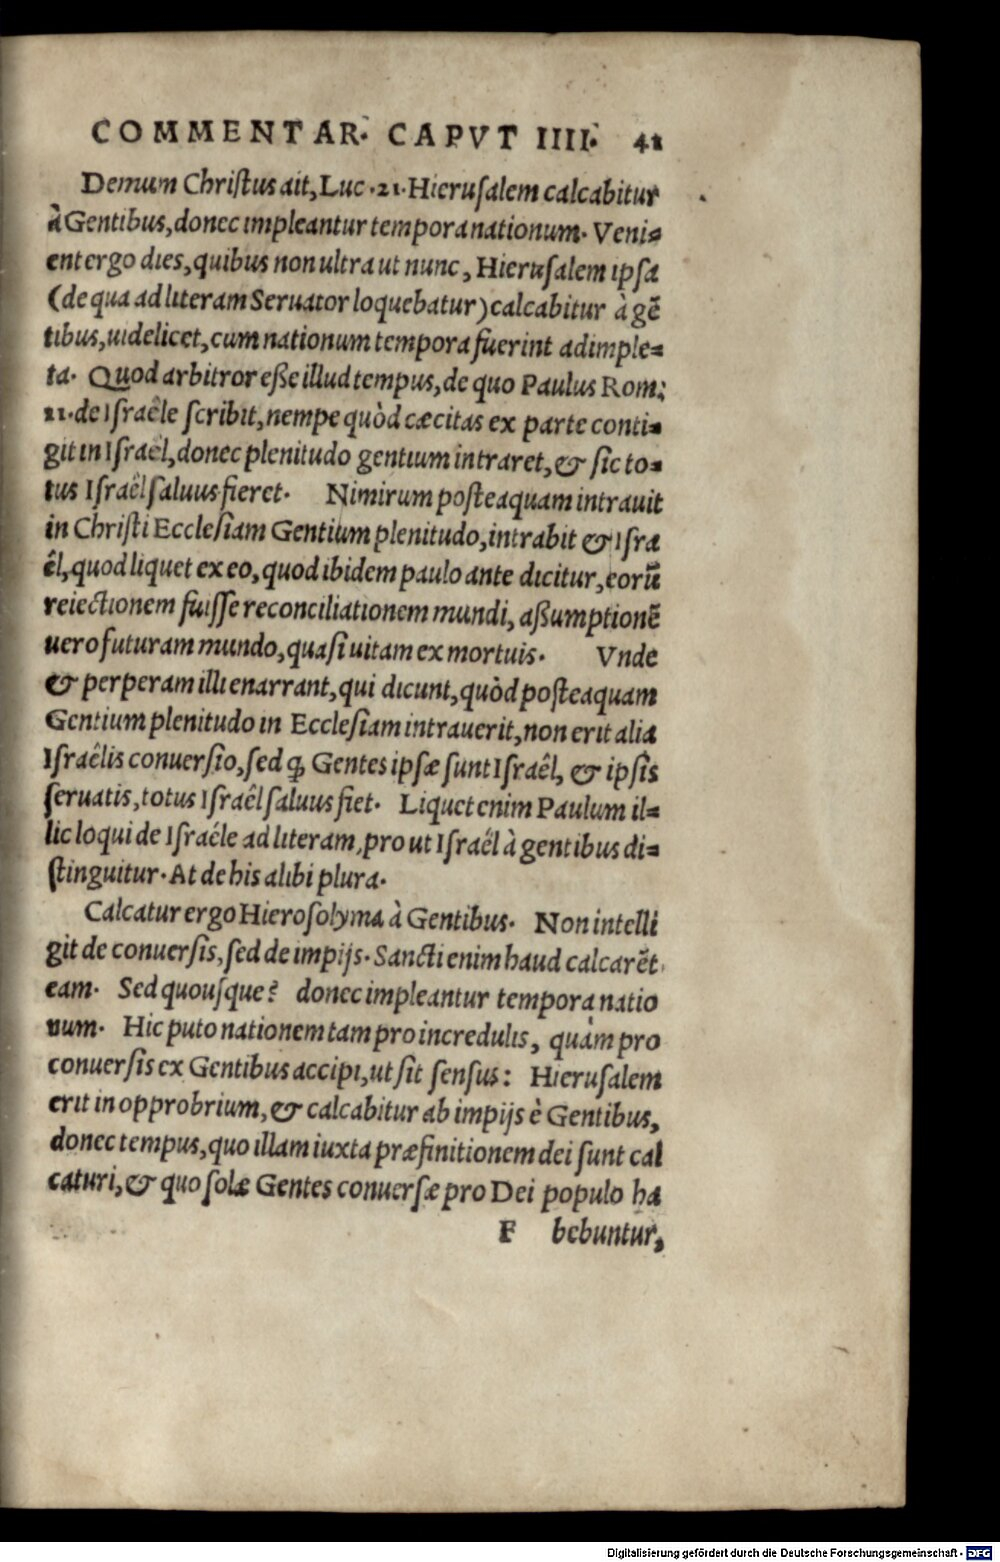 COMMENTAR. CAPVT IIII. 41
Demum Chriſtus ait, Luc .21. Hieruſalem calcabitur
à Gentibus, donec impleantur tempora nationum. Veni⸗
ent ergo dies, quibus non ultra ut nunc, Hieruſalem ipſa
(de qua ad literam Seruator loquebatur) calcabitur à gē
tibus, uidelicet, cum nationum tempora fuerint adimple⸗
ta. Quod arbitror eße illud tempus, de quo Paulus Rom:
11. de Iſraêle ſcribit, nempe quòd cæcitas ex parte conti⸗
git in Iſraêl, donec plenitudo gentium intraret, & ſic to⸗
tus Iſraêl ſaluus fieret. Nimirum poſteaquam intrauit
in Chriſti Eccleſiam Gentium plenitudo, intrabit & Iſra
êl, quod liquet ex eo, quod ibidem paulo ante dicitur, eorū
reiectionem fuiſſe reconciliationem mundi, aßumptionē
uero futuram mundo, quaſi uitam ex mortuis. Vnde
& perperam illi enarrant, qui dicunt, quòd poſteaquam
Gentium plenitudo in Eccleſiam intrauerit, non erit alia
Iſraêlis conuerſio, ſed ꝙ Gentes ipſæ ſunt Iſraêl, & ipſis
ſeruatis, totus Iſraêl ſaluus fiet. Liquet enim Paulum il⸗
lic loqui de Iſraéle ad literam, pro ut Iſraêl à gentibus di⸗
ſtinguitur. At de his alibi plura.
Calcatur ergo Hieroſolyma à Gentibus. Non intelli
git de conuerſis, ſed de impijs. Sancti enim haud calcarēt
eam. Sed quouſque? donec impleantur tempora natio
num. Hic puto nationem tam pro incredulis, quàm pro
conuerſis ex Gentibus accipi, ut ſit ſenſus: Hieruſalem
erit in opprobrium, & calcabitur ab impijs è Gentibus,
donec tempus, quo illam iuxta præfinitionem dei ſunt cal
caturi, & quo ſolæ Gentes conuerſæ pro Dei populo ha
F bebuntur,
Digitalisierung gefördert durch die Deutsche Forschungsgemeinschaft - DFG